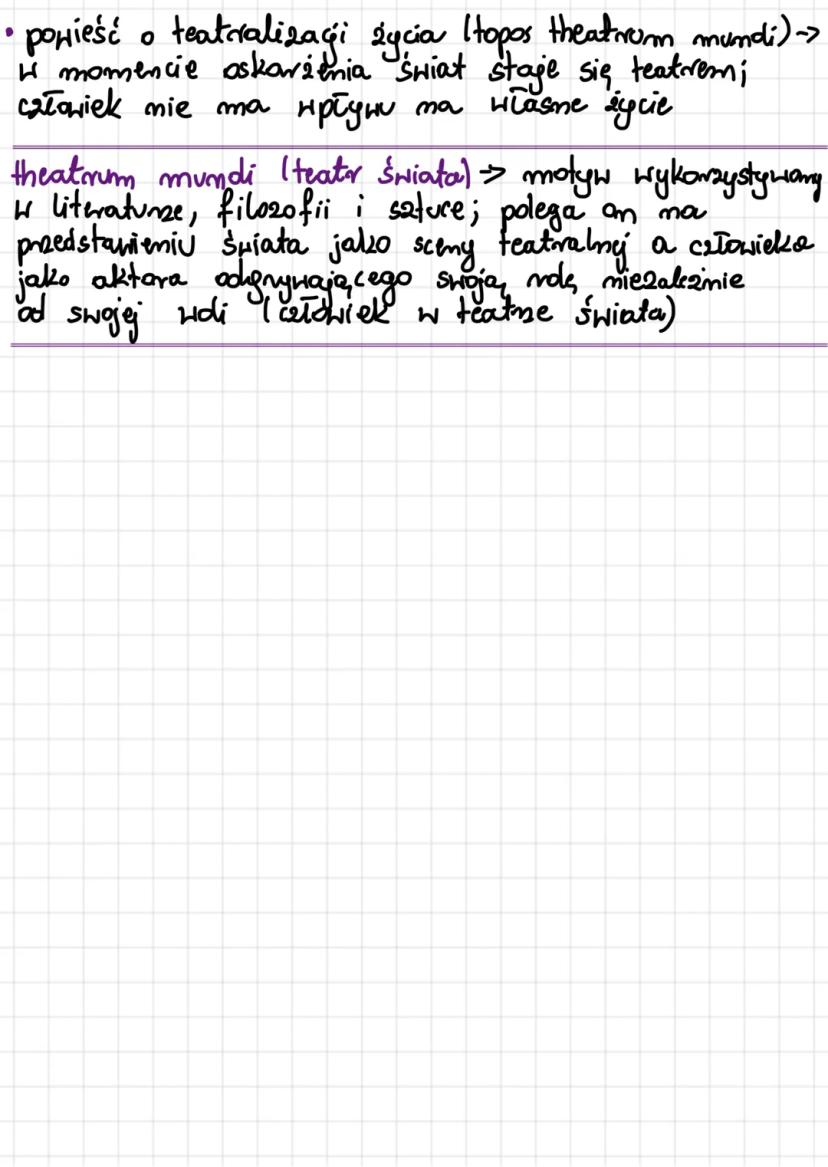 • powieść o teatralizacji życia (topos theatrum mundi) →
w momencie oskarżenia świat staje się teatrem;
człowiek nie ma wpływu na własne życie
theatrum mundi (teatr świata) → motyw wykorzystywany
w literaturze, filozofii i sztuce; polega on na
przedstawieniu świata jako sceny teatralnej a człowieka
jako aktora odgrywającego swoją rolę niezależnie
od swojej woli (człowiek w teatrze świata)